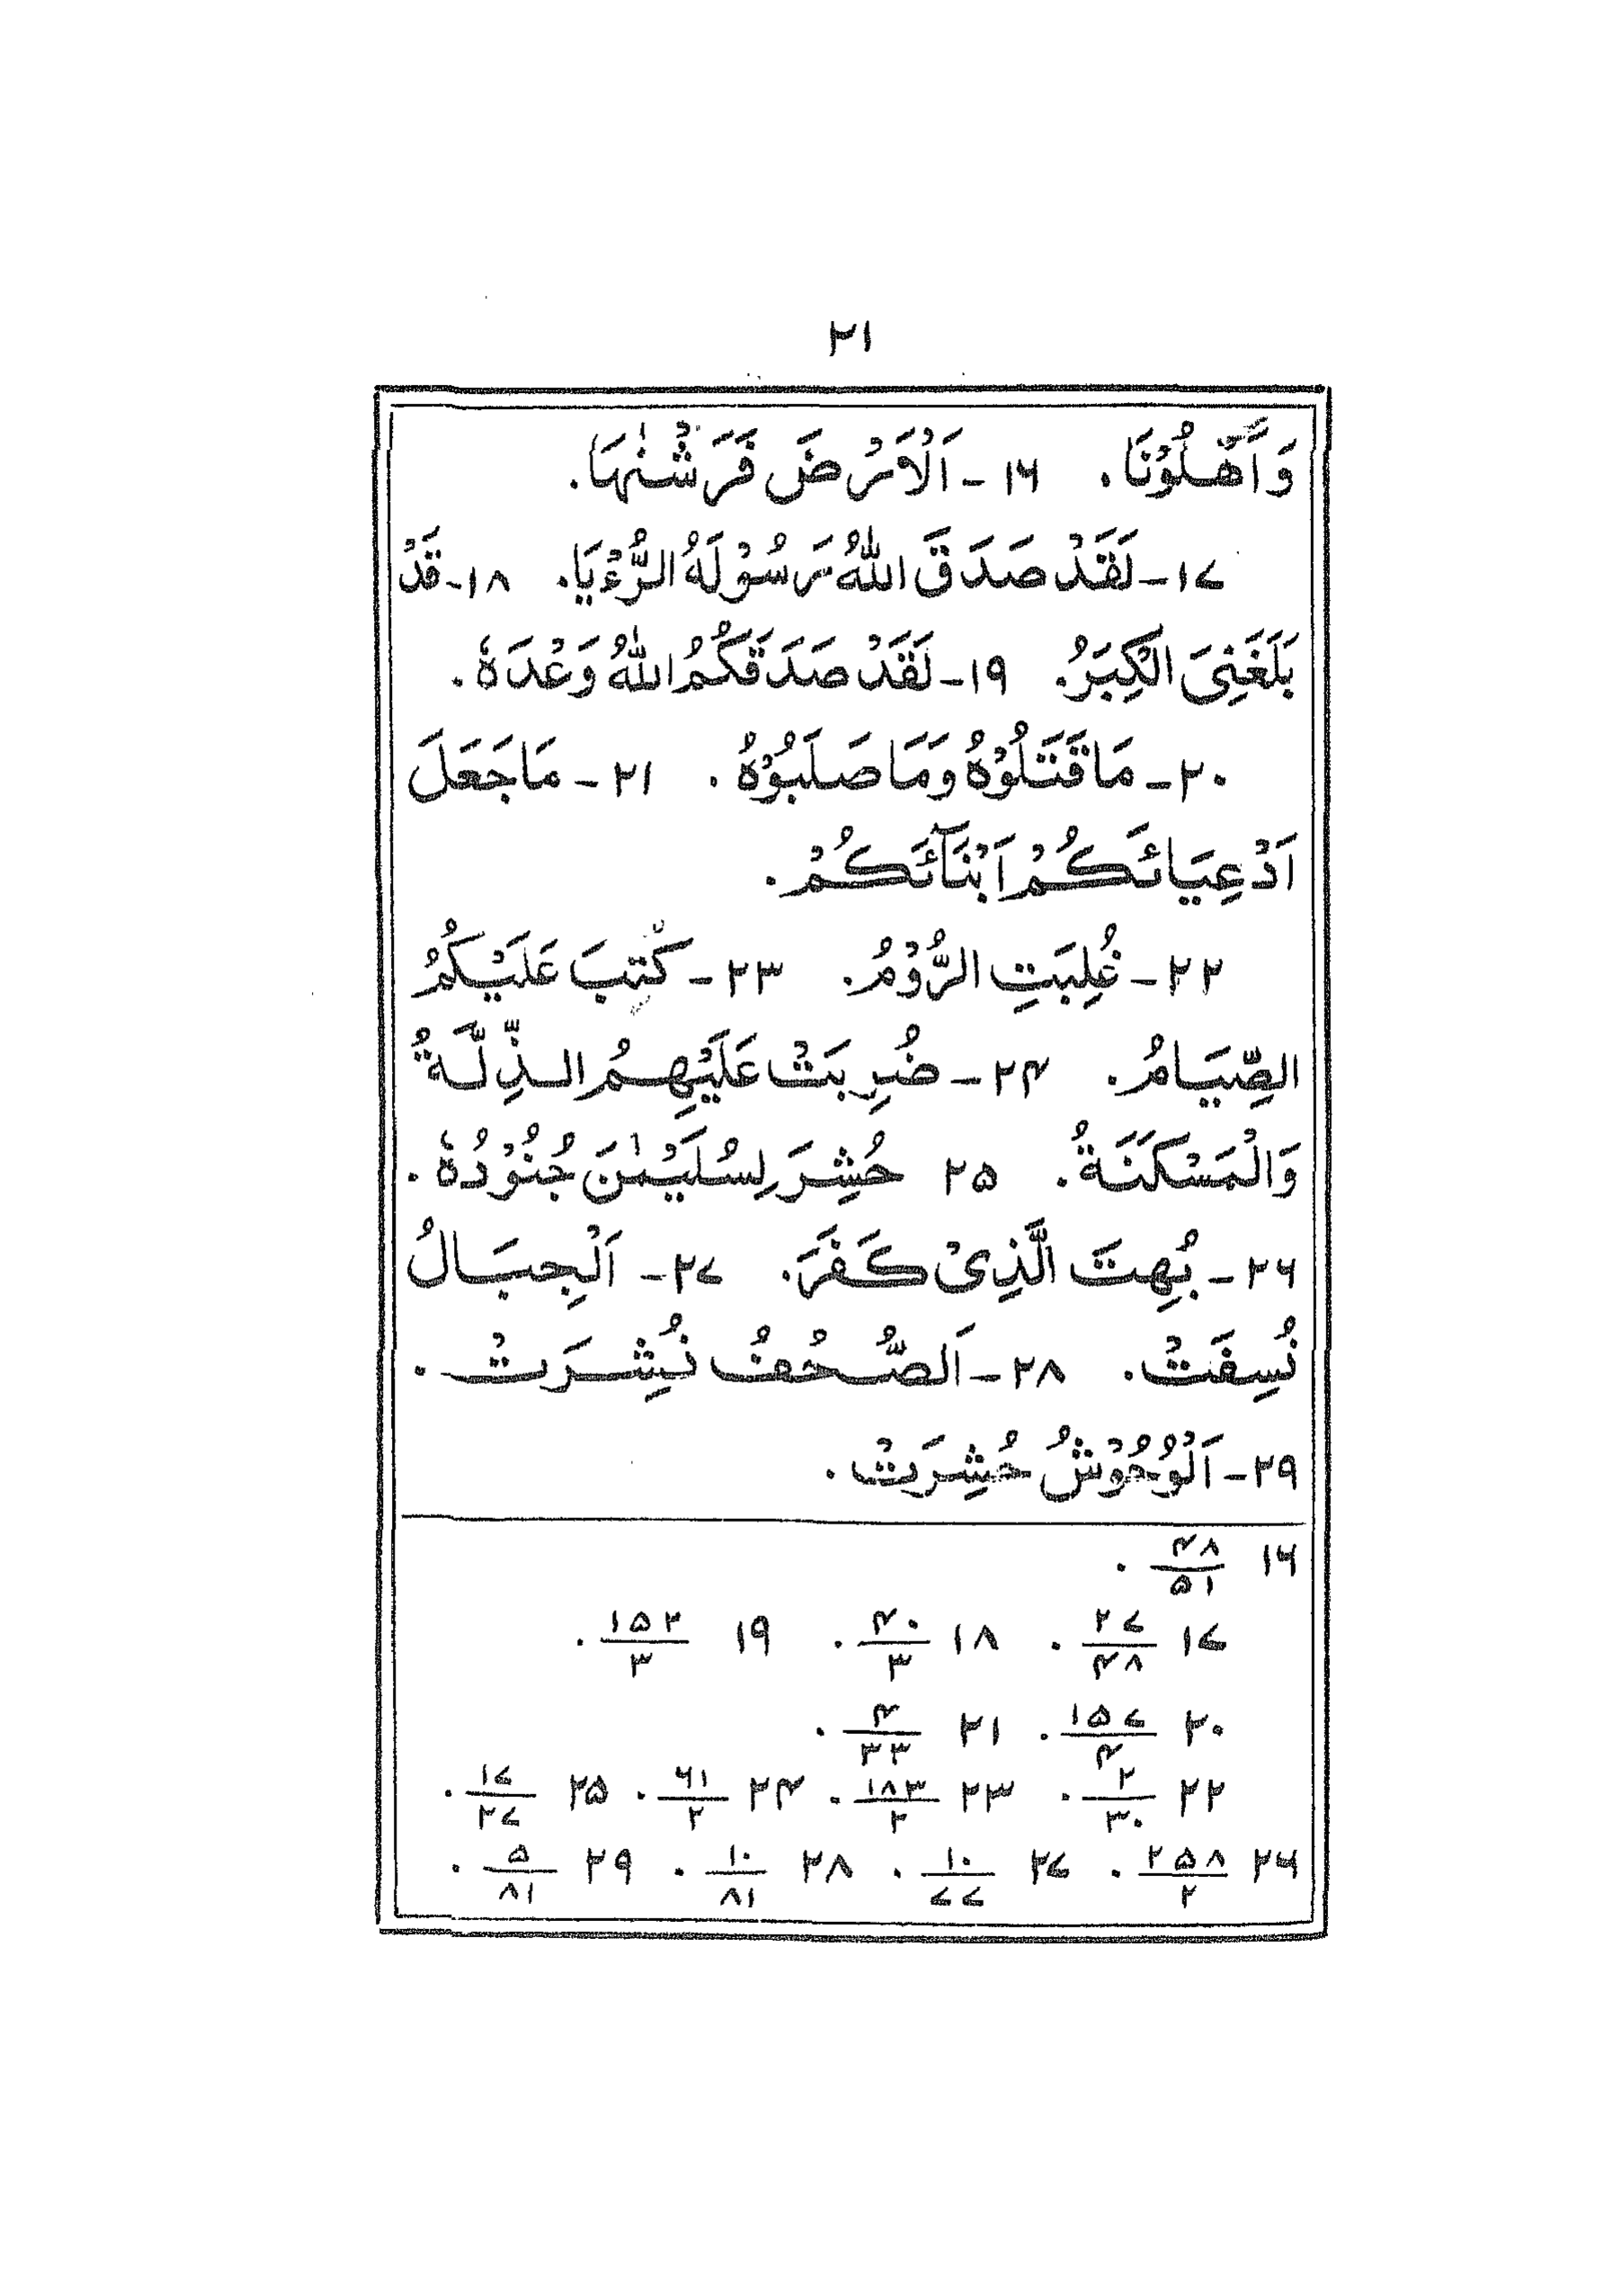 ۲۱
وَاَهْلُوْنَا. ۱۶ - اَلْاَرْضَ فَرَشْنٰهَا.
۱۷ - لَقَدْ صَدَقَ اللّٰهُ رَسُوْلَهُ الرُّءْيَا. ۱۸ - قَدْ
بَلَغَنِیَ الْكِبَرُ. ۱۹ - لَقَدْ صَدَقَكُمُ اللّٰهُ وَعْدَهٗ.
۲۰ - مَا قَتَلُوْهُ وَمَا صَلَبُوْهُ. ۲۱ - مَا جَعَلَ
اَدْعِيَائَكُمْ اَبْنَآئَكُمْ.
۲۲ - غُلِبَتِ الرُّوْمُ. ۲۳ - كُتِبَ عَلَيْكُمُ
الصِّيَامُ. ۲۴ - ضُرِبَتْ عَلَيْهِمُ الذِّلَّةُ
وَالْمَسْكَنَةُ. ۲۵ حُشِرَ لِسُلَيْمٰنَ جُنُوْدُهٗ.
۲۶ - بُهِتَ الَّذِیْ كَفَرَ. ۲۷ - اَلْجِبَالُ
نُسِفَتْ. ۲۸ - اَلصُّحُفُ نُشِرَتْ.
۲۹ - اَلْوُحُوْشُ حُشِرَتْ.
۱۶ ۴۸/۵۱.
۱۷ ۲۷/۴۸. ۱۸ ۴۰/۳. ۱۹ ۱۵۲/۳.
۲۰ ۱۵۷/۴. ۲۱ ۴/۳۳.
۲۲ ۲/۳۰. ۲۳ ۱۸۳/۲. ۲۴ ۶۱/۲. ۲۵ ۱۷/۲۷.
۲۶ ۲۵۸/۲. ۲۷ ۱۰/۷۷. ۲۸ ۱۰/۸۱. ۲۹ ۵/۸۱.